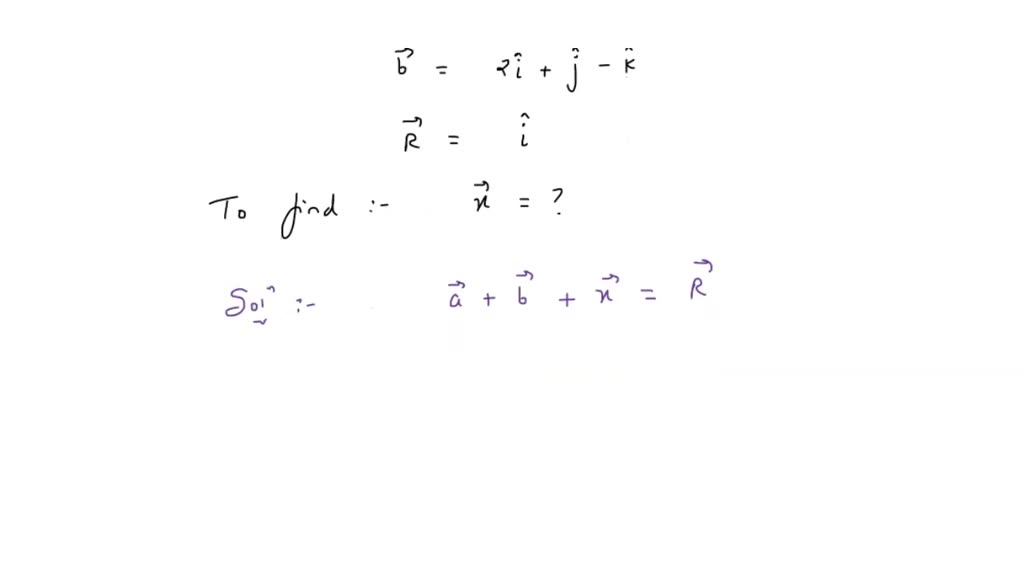 b⃗ = 2î + ĵ - k̂
R⃗ = î
To find :- x⃗ = ?
Solⁿ :- a⃗ + b⃗ + x⃗ = R⃗